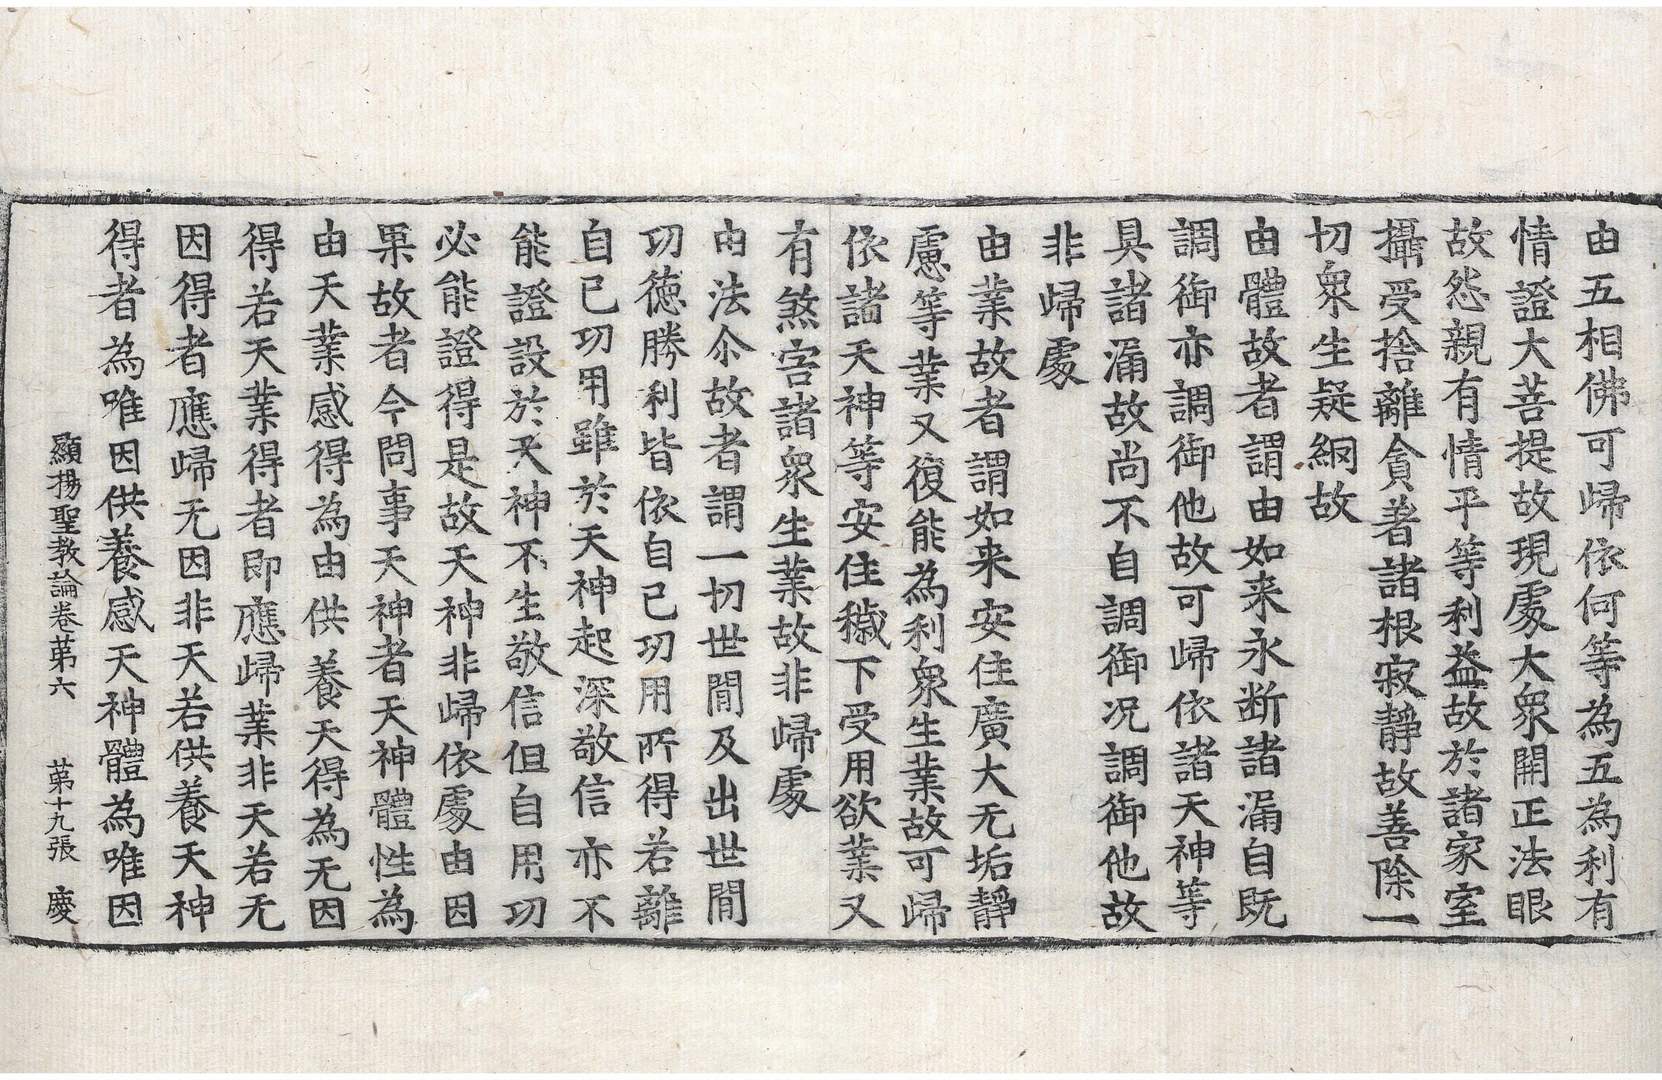 由五相佛可歸依何等為五為利有
情證大菩提故現處大衆開正法眼
故怨親有情平等利益故於諸家室
攝受捨離貪著諸根寂靜故善除一
切衆生疑網故
由體故者謂由如来永断諸漏自既
調御亦調御他故可歸依諸天神等
具諸漏故尚不自調御况調御他故
非歸處
由業故者謂如来安住廣大无垢靜
慮等業又復能為利衆生業故可歸
依諸天神等安住穢下受用欲業又
有煞害諸衆生業故非歸處
由法尒故者謂一切世間及出世間
功德勝利皆依自已功用所得若離
自已功用雖於天神起深敬信亦不
能證設於天神不生敬信但自用功
必能證得是故天神非歸依處由因
果故者今問事天神者天神體性為
由天業感得為由供養天得為无因
得若天業得者即應歸業非天若无
因得者應歸无因非天若供養天神
得者為唯因供養感天神體為唯因
顯揚聖教論卷苐六　苐十九張　慶